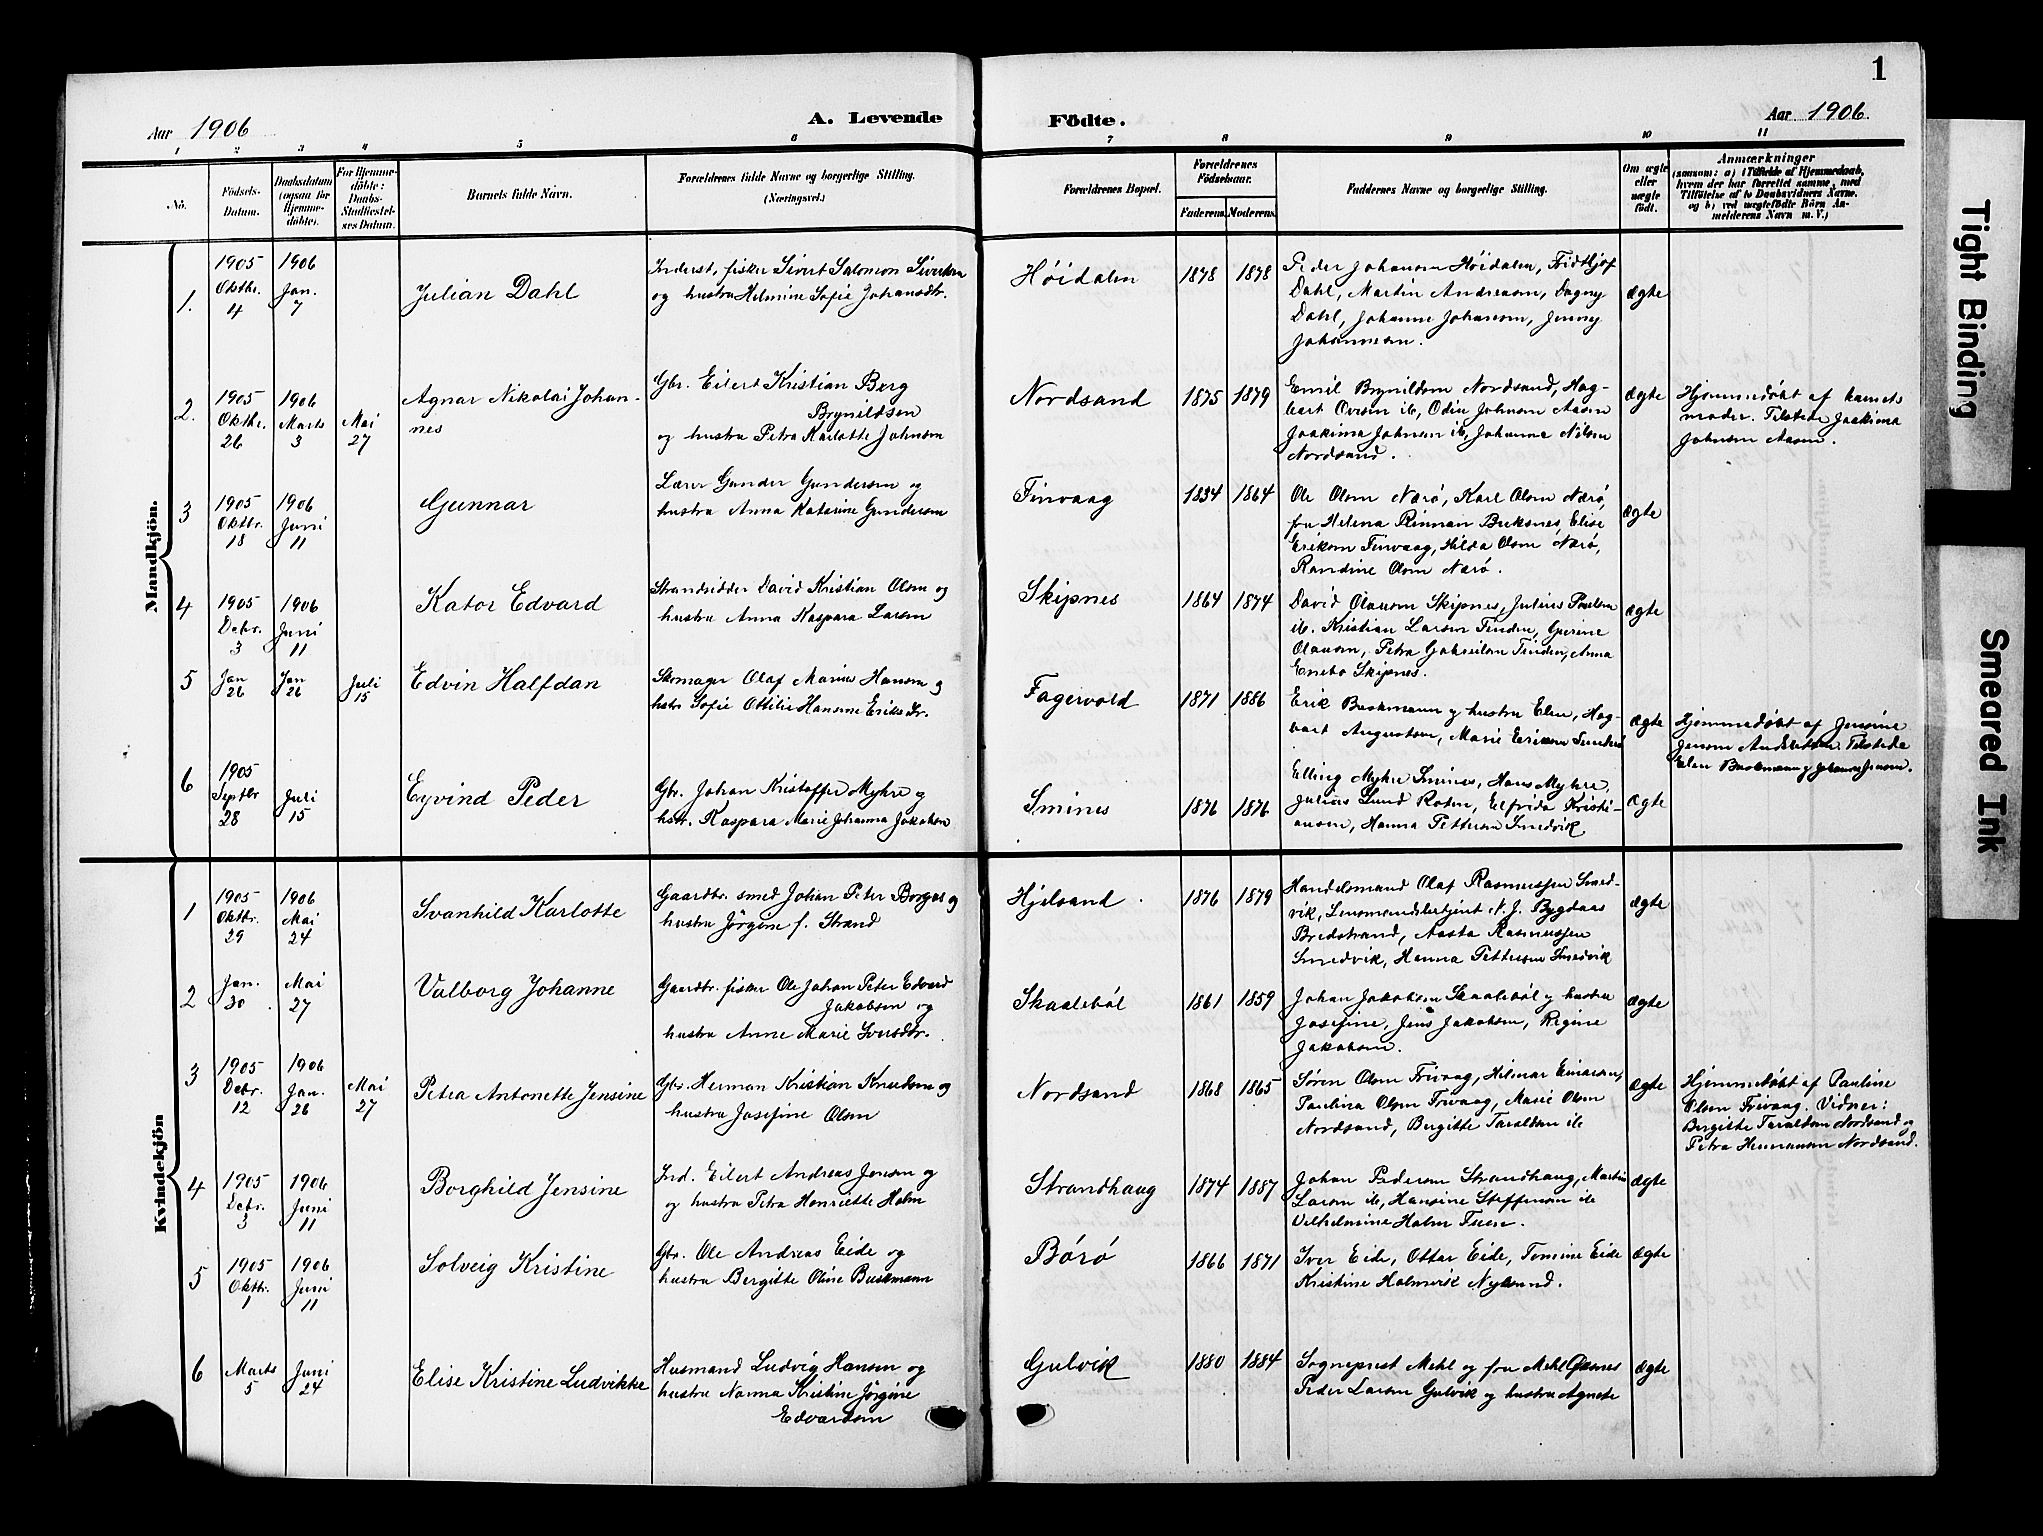 1
Aar 1906
A. Levende
Födte.
Aar 1906.
1 2 3 4 5 6 7 8 9 10 11
No.
Födsels-Datum.
Daabsdatum (ogsaa for Hjemmedöbte).
For Hjemmedöbte: Daabs-Stadfæstelses Datum.
Barnets fulde Navn.
Forældrenes fulde Navne og borgerlige Stilling.
(Næringsvei.)
Forældrenes Bopæl.
Forældrenes Födselsaar.
Faderens. Moderens.
Faddernes Navne og borgerlige Stilling.
Om ægte eller uægte födt.
Anmærkninger
(saasom: a) i Tilfælde af Hjemmedaab,
hvem der har forrettet samme, med
Tilföielse af to Daabsvidners Navne,
og b) ved uægtefödte Börn An-
melderens Navn m. V.)
Mandkjön.
1. 1905 Oktbr. 4 1906 Jan. 7
Julian Dahl
Inderst, fisker Sivert Salomon Sivertsen
og hustru Helmine Sofie Johansdtr.
Høidalen 1878 1878
Peder Johansen Høidalen, Fridthjof
Dahl, Martin Andreasen, Dagny
Dahl, Johanne Johansen, Jenny
Johannesen.
ægte
2. 1905 Oktbr. 26 1906 Marts 3 Mai 27
Agnar Nikolai Johan-
nes
Gbr. Eilert Kristian Berg
Brynildsen
og hustru Petra Karlotte Johnsen
Nordsand 1875 1879
Emil Brynildsen Nordsand, Hag-
bart Oversen ib, Odin Johnsen Aasen
Joakima Johnsen ib, Johanna Nilsen
Nordsand.
ægte
Hjemmedøbt af barnets
moder. Tilstede Joakima
Johnsen Aasen.
3 1905 Oktbr. 18 1906 Juni 11
Gunnar
Lærer Gunder Gundersen og
hustru Anna Katarine Gundersen
Finvaag 1834 1864
Ole Olsen Nærø, Karl Olsen Nærø,
fru Helena Rinnan Buksnes, Elise
Eriksen Finvaag, Hilda Olsen Nærø,
Randine Olsen Nærø.
ægte
4 1905 Debr. 3 1906 Juni 11
Kator Edvard
Strandsidder David Kristian Olsen og
hustru Anna Kaspara Larsen
Skipnes 1864 1874
David Olausen Skipnes, Julius Paulsen
ib. Kristian Larsen Tinden, Gurine
Olausen, Petra Gabrielsen Tinden, Anna
Enebo Skipnes.
ægte
5 Jan 26 Jan 26 Juli 15
Edvin Halfdan
Skomager Olaf Marius Hansen og
hstr. Sofie Ottilie Hansine Eriksdr.
Fagervold 1871 1886
Erik Buskmann og hustru Elen, Hag-
bart Augustsen, Marie Eriksen
ægte
Hjemmedøbt af Jensine
Jensen Tilstede
Elen Buskmann og Johanna Jensen.
6 1905 Septbr 28 Juli 15
Eyvind Peder
Gbr. Johan Kristoffer Myhre og
hstr. Kaspara Marie Johanna Jakobsen
Smines 1876 1876
Elling Myhre Smines, Hans Myhre,
Julius Lund Roten, Elfrida Kristi-
ansen, Hanna Pettersen Smedvik
ægte
Kvindekjön
1 1905 Oktbr. 29 1906 Mai 24
Svanhild Karlotte
Gaardbr. smed Johan Peter Borgas og
hustru Jørgine f. Strand
Hjelsand. 1876 1879
Handelsmand Olaf Rasmussen Smed-
vik, Lensmandsbetjent N. J. Bygdaas
Bredstrand, Aasta Rasmussen
Smedvik, Hanna Pettersen Smedvik
ægte
2 Jan. 30. Mai 27
Valborg Johanne
Gaardbr. fisker Ole Johan Peter Edvard
Jakobsen og
hustru Anne Marie Iversdtr.
Skaalebøl 1861 1859
Johan Jakobsen Skaalebøl og hustru
Josefine, Jens Jakobsen, Regine
Jakobsen.
ægte
3 1905 Debr. 12 1906 Jan. 26 Mai 27
Petra Antonette Jensine
Gbr. Herman Kristian Knudsen og
hustru Josefine Olsen
Nordsand 1868 1865
Søren Olsen Frivaag, Hilmar Einarsen,
Paulina Olsen Frivaag, Marie Olsen
Nordsand, Bergitte Taraldsen ib
ægte
Hjemmedøbt af Pauline
Olsen Frivaag. Vidner:
Bergitte Taraldsen Nordsand og
Petra Hermansen Nordsand.
4 1905 Debr. 3 1906 Juni 11
Borghild Jensine
Ind. Eilert Andreas Jensen og
og hustru Petra Henriette Holm
Strandhaug 1874 1887
Johan Pedersen Strandhaug, Martin
Larsen ib, Hansine Steffensen ib
Vilhelmine Holm Tuen.
ægte
5 1905 Oktbr. 1 1906 Juni 11
Solveig Kristine
Gbr. Ole Andreas Eide og
hustru Bergitte Oline Buskmann
Børø 1866 1871
Iver Eide, Ottar Eide, Tomine Eide
Kristine Holmvik Nyksund.
ægte
6 Marts 5 Juni 24
Elise Kristine Ludvikke
Husmand Ludvig Hansen og
hustru Nanna Kristine Jørgine
Edvardsen
Gulvik 1880 1884
Sogneprest Mehl og fru Mehl Gisnes
Peder Larsen Gulvik og hustru Agnete
ægte
Tight Binding
Smeared Ink